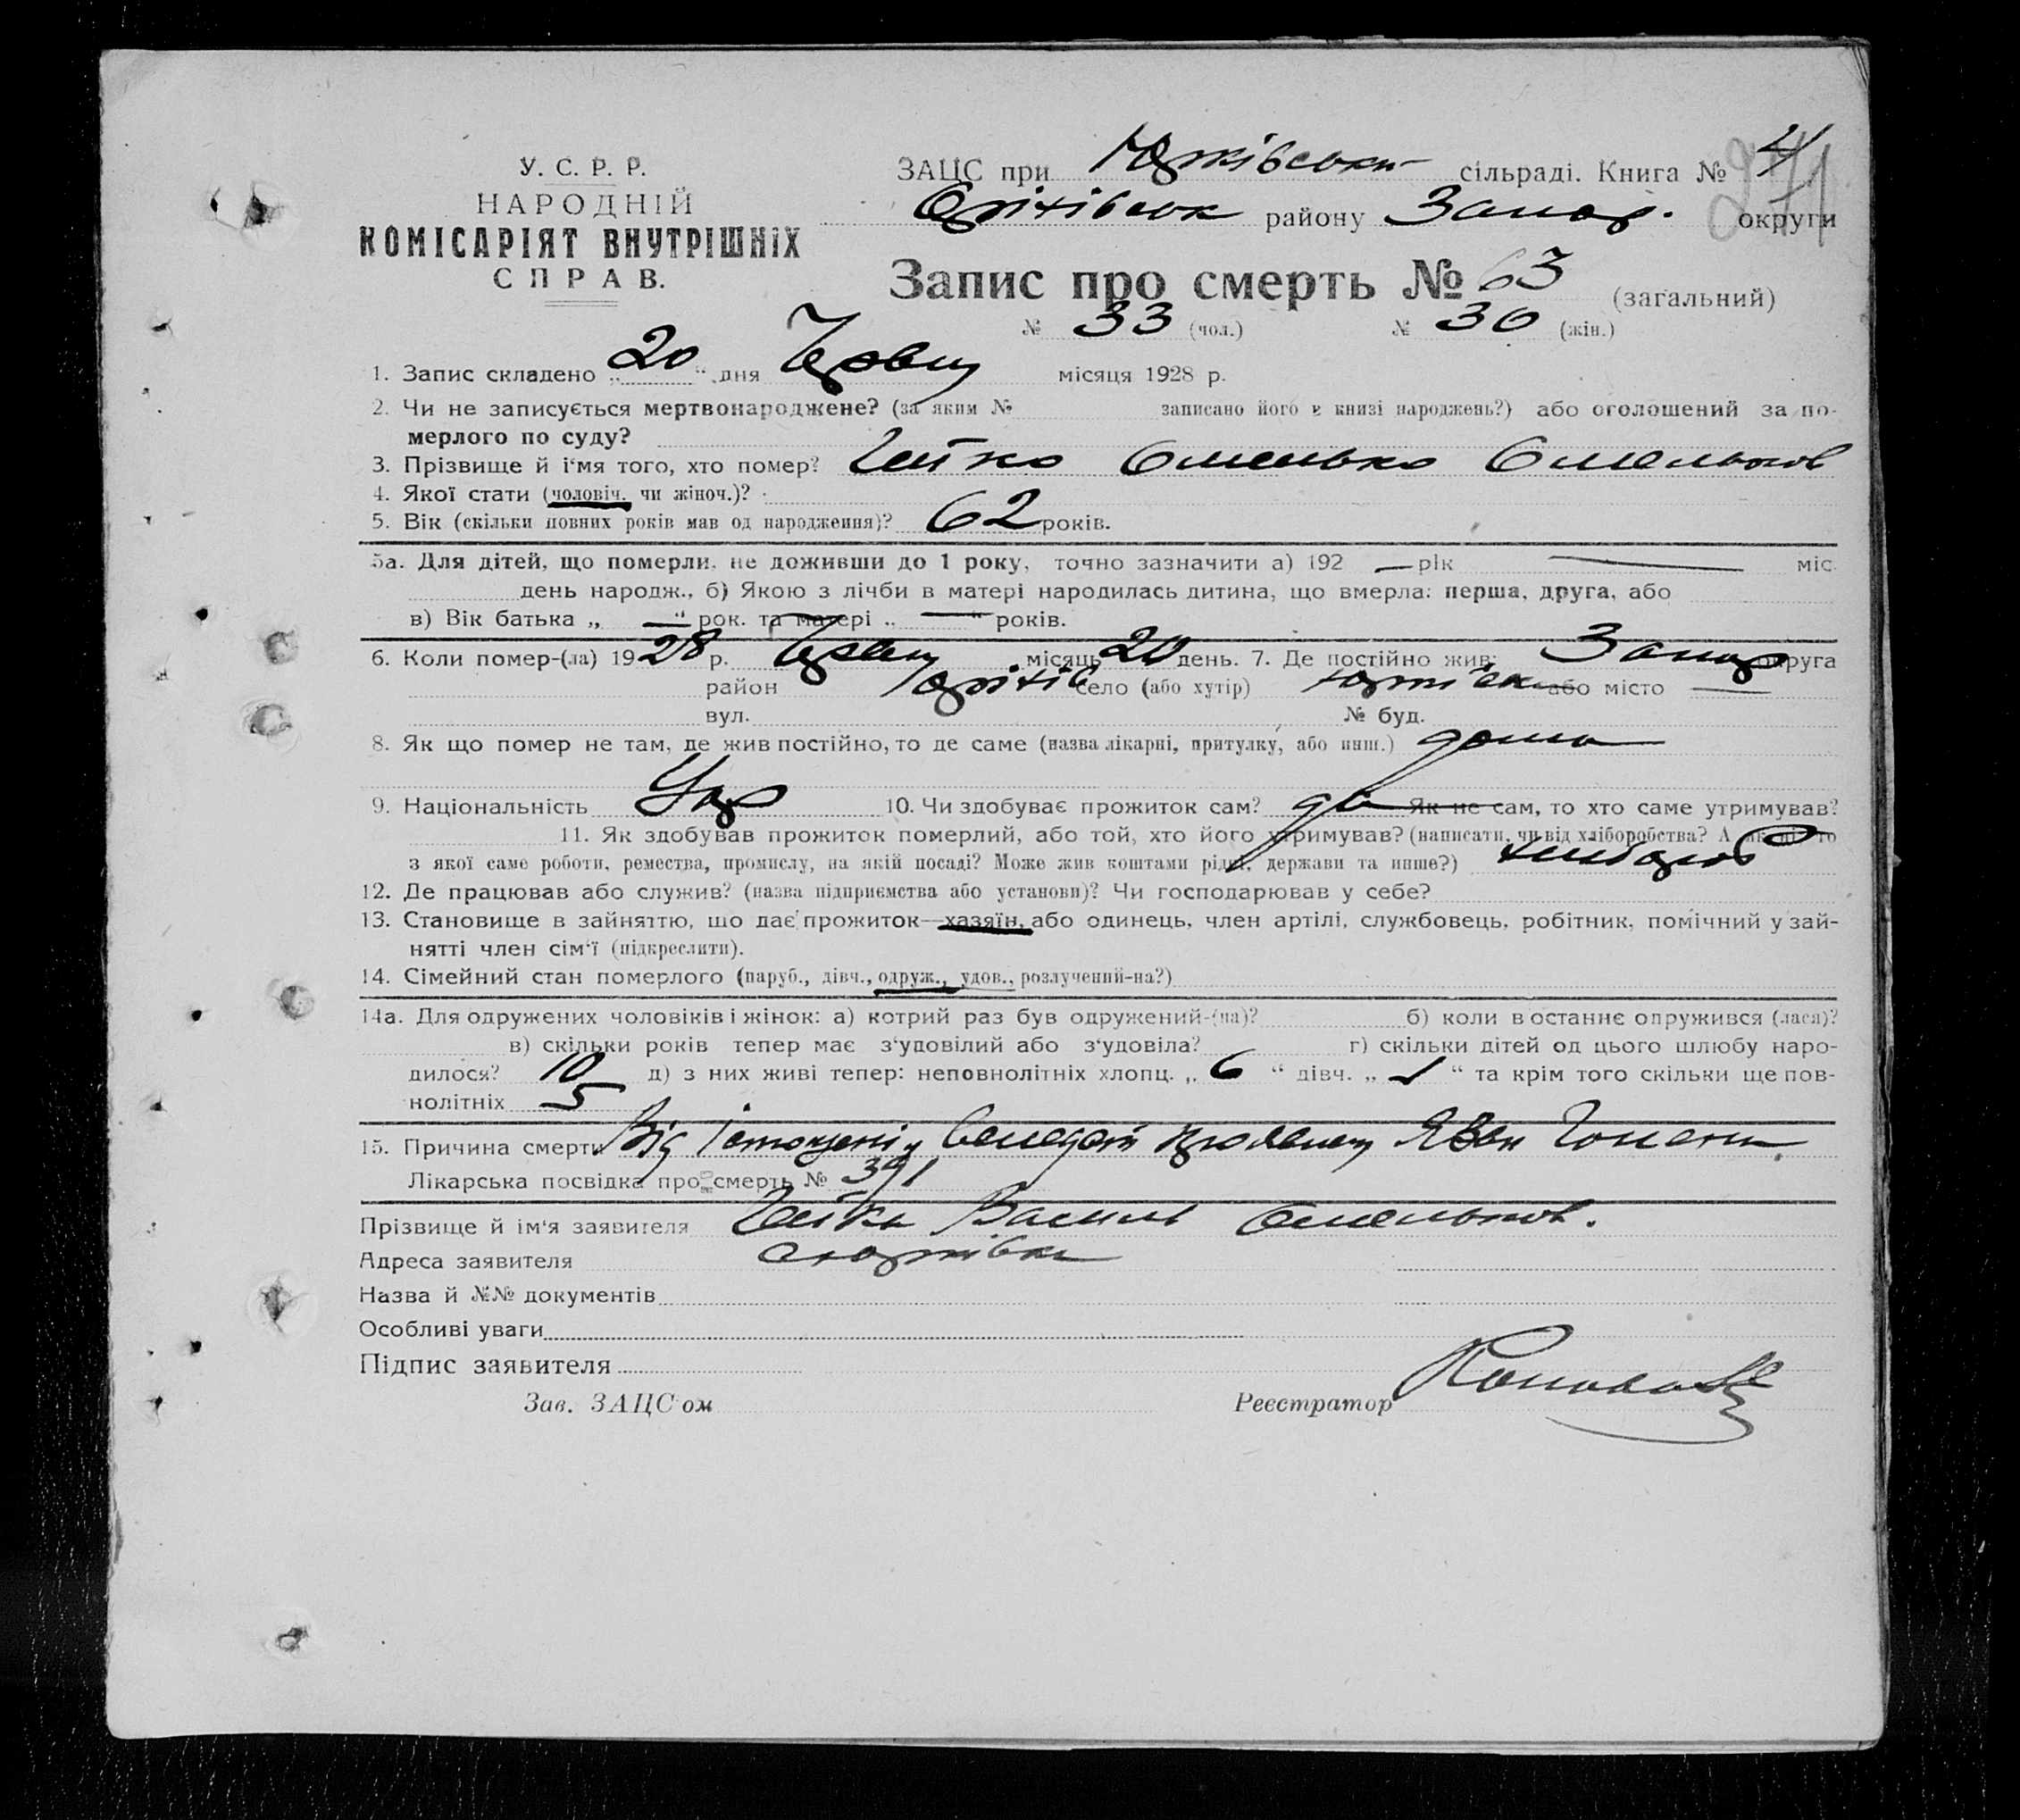 У. С. Р. Р.
НАРОДНІЙ
КОМІСАРІЯТ ВНУТРІШНІХ
СПРАВ.
ЗАЦС при Юрківськи сільраді. Книга № 4
271
Оріхівськ району Запор. округи
Запис про смерть № 63 (загальний)
№ 33 (чол.) № 30 (жін.)
1. Запис складено „20“ дня Червня місяця 1928 р.
2. Чи не записується мертвонароджене? (за яким № записано його в книзі народжень?) або оголошений за по-
мерлого по суду?
3. Прізвище й і'мя того, хто помер? Омелько Омельков
4. Якої стати (чоловіч. чи жіноч.)?
5. Вік (скільки повних років мав од народження)? 62 років.
5а. Для дітей, що померли, не доживши до 1 року, точно зазначити а) 192 — рік — міс.
день народж., б) Якою з лічби в матері народилась дитина, що вмерла: перша, друга, або
в) Вік батька „ — “ рок. та матері „ — “ років.
6. Коли помер-(ла) 1928 р. Червня місяць 20 день. 7. Де постійно жив: Запор округа
район Оріхів село (або хутір) Юрківка або місто —
вул. № буд.
8. Як що помер не там, де жив постійно, то де саме (назва лікарні, притулку, або инш.) дома
9. Національність Укр 10. Чи здобуває прожиток сам? Як не сам, то хто саме утримував?
11. Як здобував прожиток померлий, або той, хто його утримував? (написати, чи від хліборобства? А як ні, то
з якої саме роботи, ремества, промислу, на якій посаді? Може жив коштами рідні, держави та инше?) хлібороб
12. Де працював або служив? (назва підприємства або установи)? Чи господарював у себе?
13. Становище в зайняттю, що дає прожиток—хазяїн, або одинець, член артілі, службовець, робітник, помічний у зай-
нятті член сім'ї (підкреслити).
14. Сімейний стан померлого (паруб., дівч., одруж., удов., розлучений-на?)
14а. Для одружених чоловіків і жінок: а) котрий раз був одружений-(на)? б) коли в останнє опружився (лася)?
в) скільки років тепер має з'удовілий або з'удовіла? г) скільки дітей од цього шлюбу наро-
дилося? 10 д) з них живі тепер: неповнолітніх хлопц. „ 6 “ дівч. „ “ та крім того скільки ще пов-
нолітніх 5
15. Причина смерти Від
Лікарська посвідка про смерть № 391
Прізвище й ім'я заявителя Василь Омельков.
Адреса заявителя с Юрківка
Назва й №№ документів
Особливі уваги
Підпис заявителя
Зав. ЗАЦС'ом Реєстратор